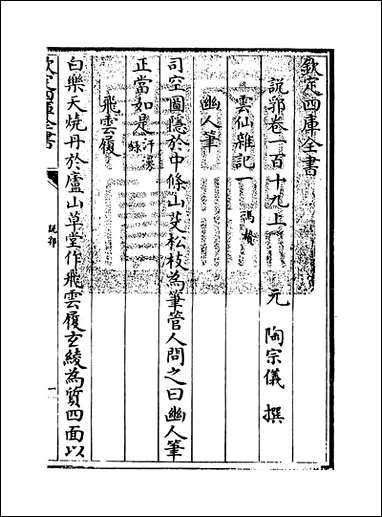 欽定四庫全書
說郛卷一百十九上　元　陶宗儀　撰
雲仙雜記一　馮贄
幽人筆
司空圖隱於中條山芟松枝為筆管人問之曰幽人筆
正當如是汗漫錄
飛雲履
白樂天燒丹於廬山草堂作飛雲履玄綾為質四面以
欽定四庫全書
說郛
一